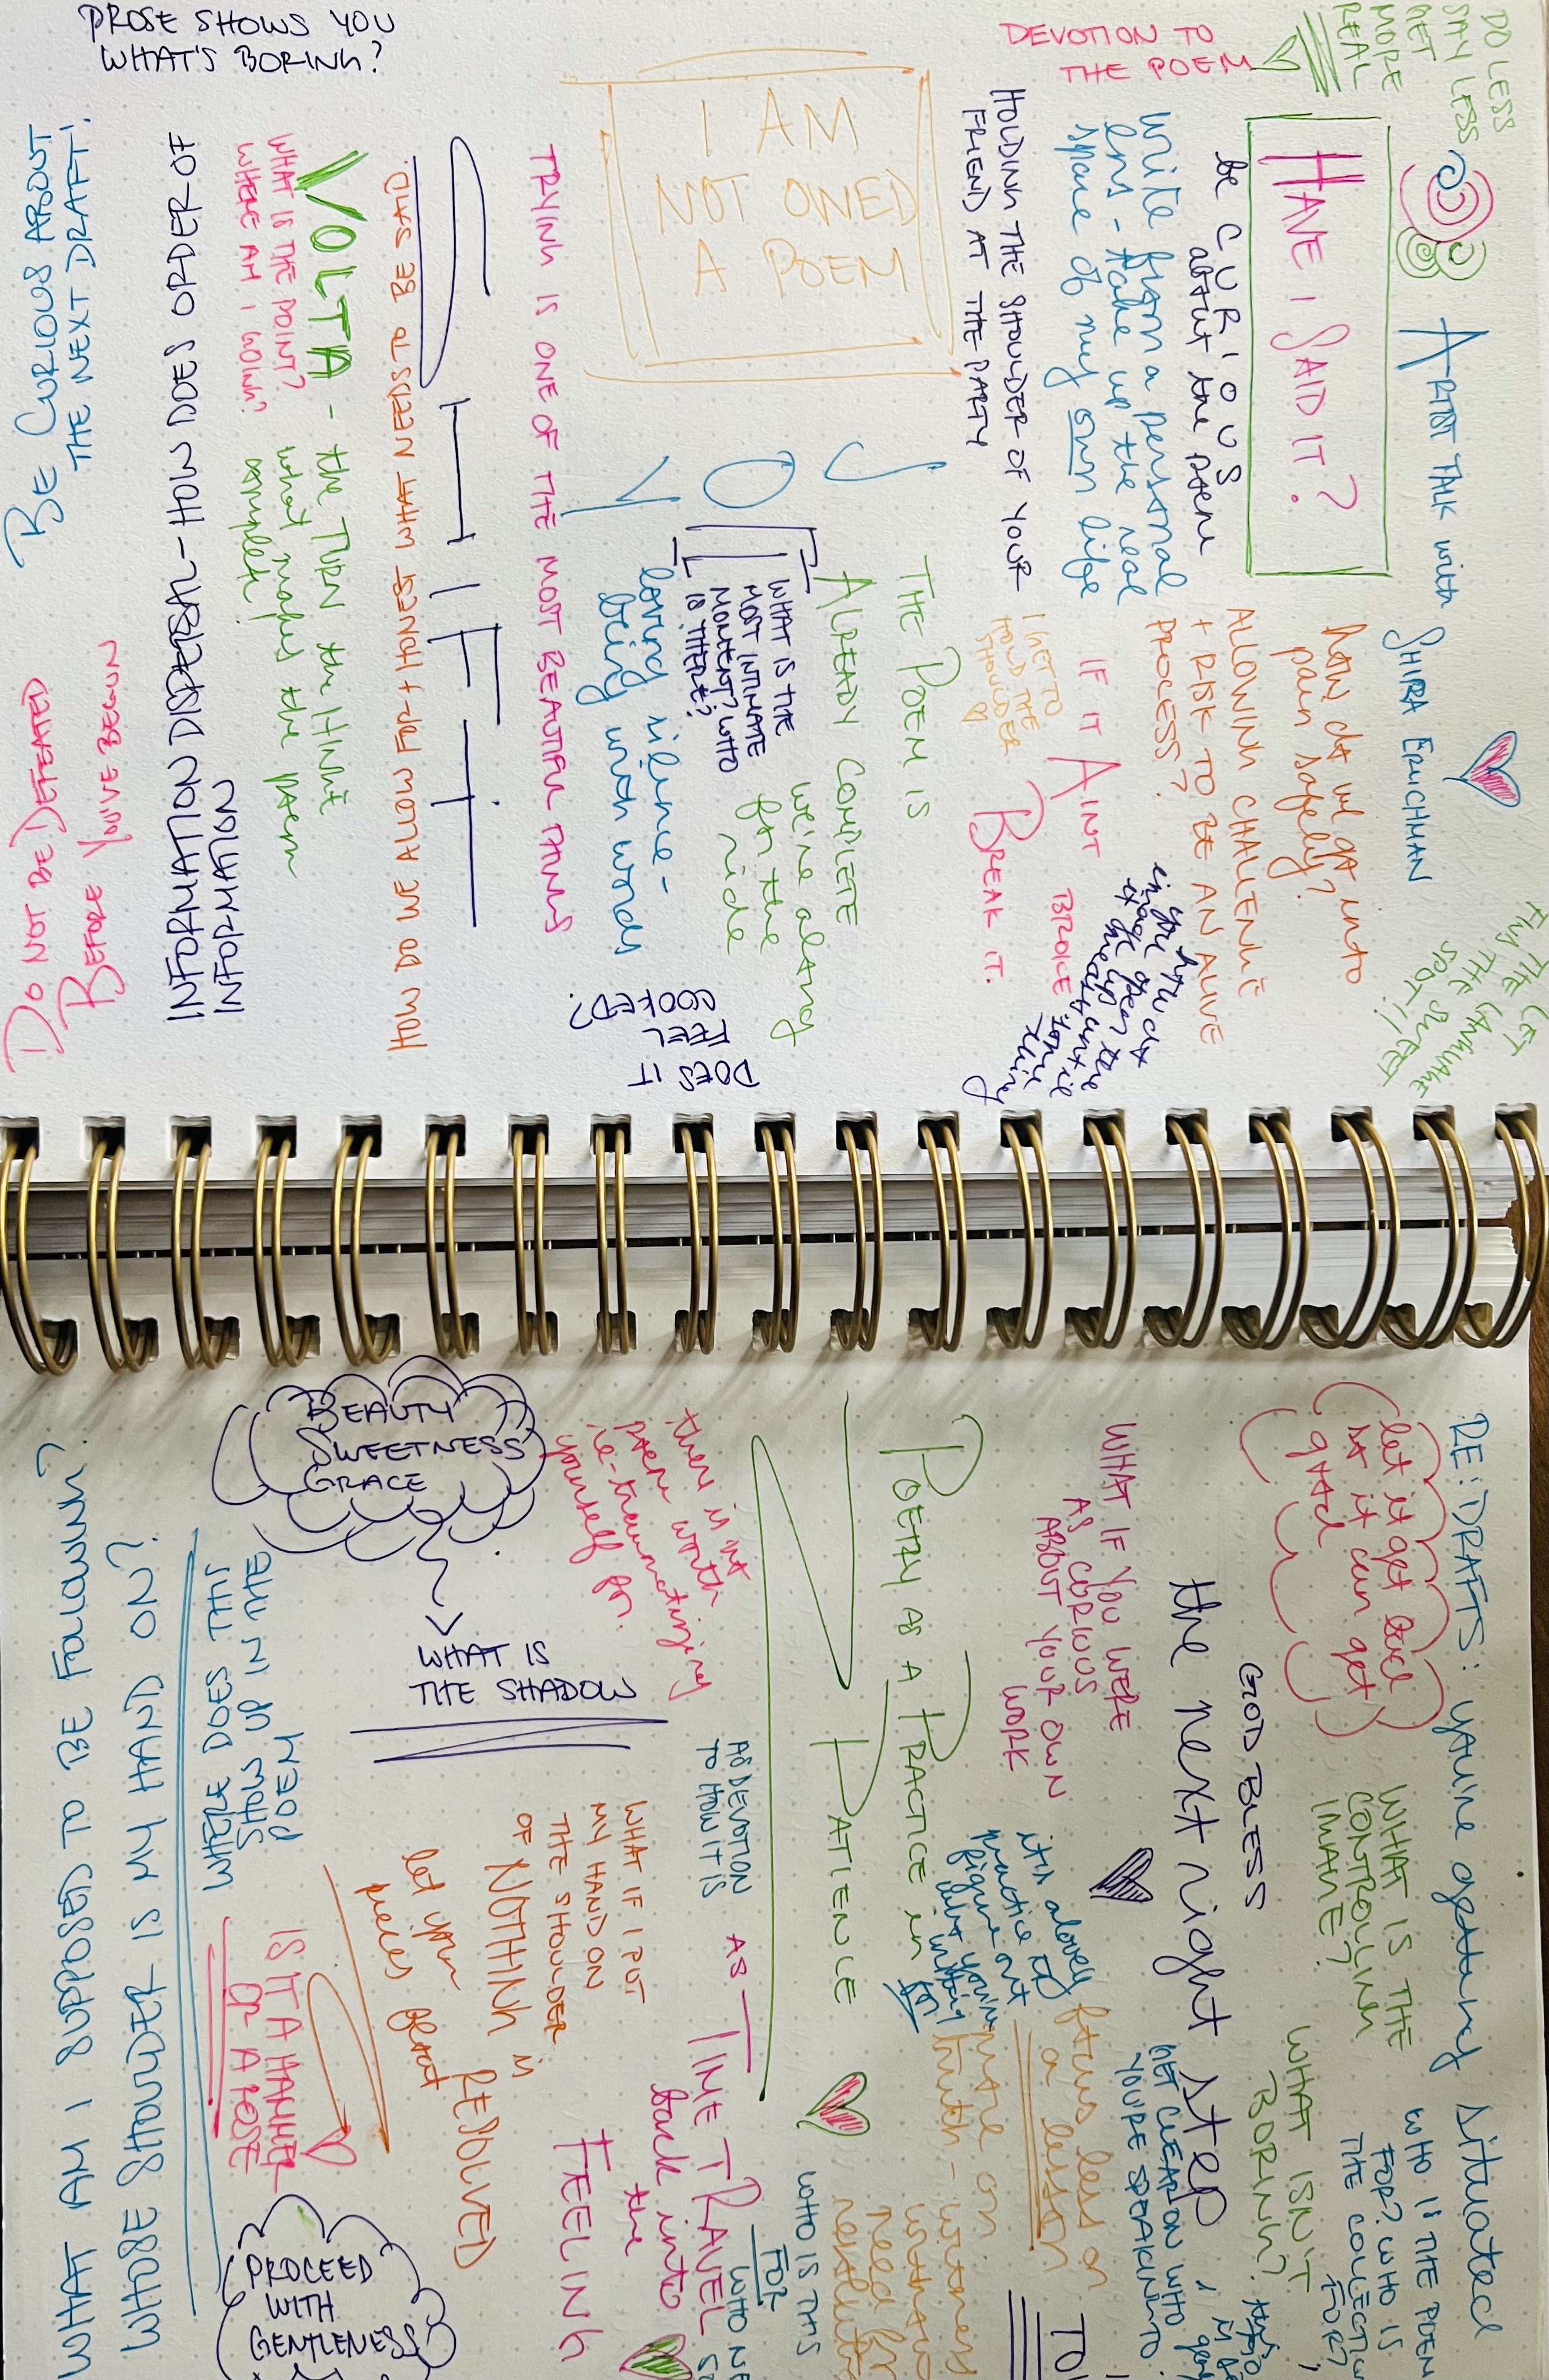 DO LESS
SAY LESS
GET
MORE
REAL
ARTIST TALK with SHIRA ERLICHMAN
HAVE I SAID IT?
DEVOTION TO
THE POEM
be CURIOUS
about the poem
write from a personal
lens - take up the real
space of my own life
HOLDING THE SHOULDER OF YOUR
FRIEND AT THE PARTY
how do we go into
pain safely?
ALLOWING CHALLENGE
+ RISK TO BE AN ALIVE
PROCESS?
THE LANGUAGE
SPOT
IF IT AINT BROKE
BREAK IT.
I GET TO
HOLD THE
SHOULDER
I AM
NOT OWED
A POEM
JOY
THE POEM IS
ALREADY COMPLETE
we're along
for the
ride
WHAT IS THE
MOST INTIMATE
MOMENT? WHO
IS THERE?
loving silence -
being with words
DOES IT
FEEL
COOKED?
TRYING IS ONE OF THE MOST BEAUTIFUL THINGS
HOW DO WE ALLOW FOR + HONEST WHAT NEEDS TO BE SAID
VOLTA - the TURN the HINGE
what makes the poem
complete
WHAT IS THE POINT?
WHERE AM I GOING?
INFORMATION DISPERSAL - HOW DOES ORDER OF
INFORMATION
PROSE SHOWS YOU
WHAT'S BORING?
BE CURIOUS ABOUT
THE NEXT DRAFT!
DO NOT BE DEFEATED
BEFORE YOU'VE BEGUN
RE: DRAFTS: you're operating situated
let it get bad
so it can get
good
WHAT IS THE
CONTROLLING
IMAGE?
WHO IS THE POEM
FOR? WHO IS
THE COLLECTION
FOR?
GOD BLESS
the next right step
WHAT ISN'T
BORING?
GET CLEAR ON WHO
YOU'RE SPEAKING TO
WHAT IF YOU WERE
AS CURIOUS
ABOUT YOUR OWN
WORK
it's a lovely
practice to
figure out
what you're
writing
for
focus less on
a lesson
more on
truth - witness
without
need for
POETRY AS A PRACTICE in
PATIENCE
AS DEVOTION
TO HOW IT IS
AS TIME TRAVEL
back into
the
FEELING
WHO IS THIS
FOR
there is not
poem worth
re-traumatizing
yourself for.
WHAT IF I PUT
MY HAND ON
THE SHOULDER
OF NOTHING is
RESOLVED
let your
pieces float
BEAUTY
SWEETNESS
GRACE
WHAT IS
THE SHADOW
WHERE DOES THIS
SHOW UP IN THE
POEM
IS IT A HAMMER
OR A ROSE
PROCEED
WITH
GENTLENESS
WHOSE SHOULDER IS MY HAND ON?
WHAT AM I SUPPOSED TO BE FOLLOWING?